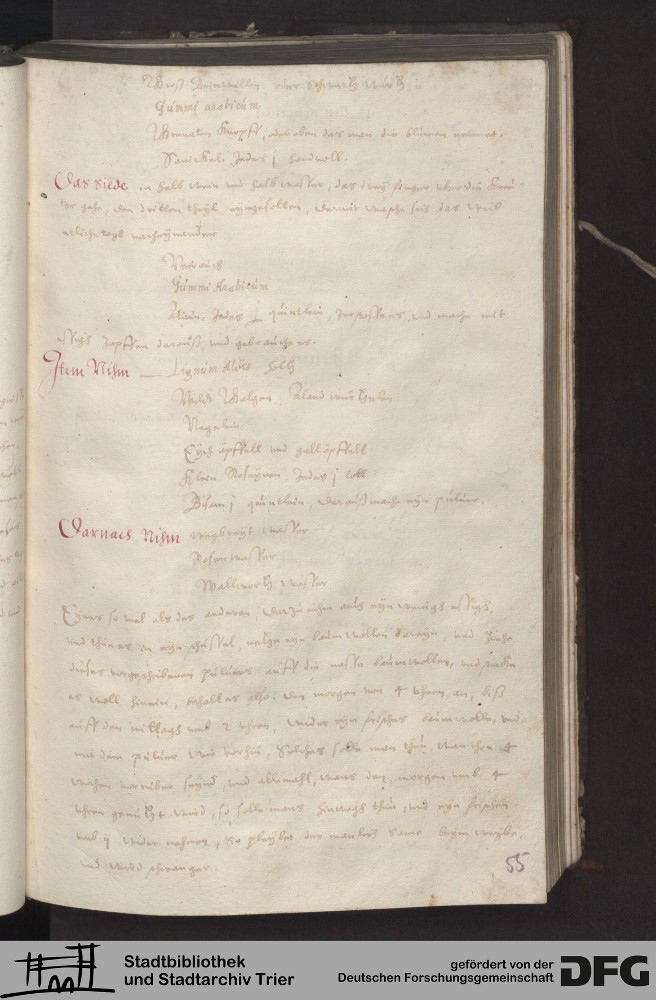 Groß Beinwellen oder Schwartz wurtz
Gummi arabicum
Knopff, oder oben das man die blumen nennet.
Sanickel, Jedes j handvoll.
Das siede in halb wein und halb wasser, das drey finger uber die Kreu-
ter gehe, den dritten theyl eyngesotten, darmit wasche sich das weib
etliche tage nacheynander
Weirauch
Gummi Arabicum
Alaun, Jedes quintlein, zerstossens, und mache mit
essigh Zepffen darauß, und gebrauche es.
Item Nihm — Lignum Aloes holtz
Wilde Galgen, Aland wurtzeln
Negelein
Eych öpffell und gall öpffell
Klein Roseynen Jedes j lott
Bisem j quintlein, darauß mache eyn pulver.
Darnach Nihm wegbreyt wasser
Rosen wasser
Wallwortz wasser
Eynes so viel als des anderen, darzu nihm auch eyn wenigh essigh,
und thue es in eyn schüssel, netze eyn baumwollen dareyn, und
dieses vorgeschriebenen pulvers auff die nasse baumwollen, und
es woll hinein, behalt es also den morgen von 4 uhren an, biß
auff den mittagh umb 2 uhren, wider eyn frisches baumwolle, und
mit dem pulver wie vorhin, Solches solle man thun, wan ihre 4
wochen voruber seynd, und allemahl, wans den morgen umb 4
uhren genützt wird, so solle mans hinwegh thun, und eyn frisches
umb ij wider nehmen, So pleybet der manlich same beym weybe,
und wird schwanger.
55
Stadtbibliothek
und Stadtarchiv Trier
gefördert von der
Deutschen Forschungsgemeinschaft
DFG